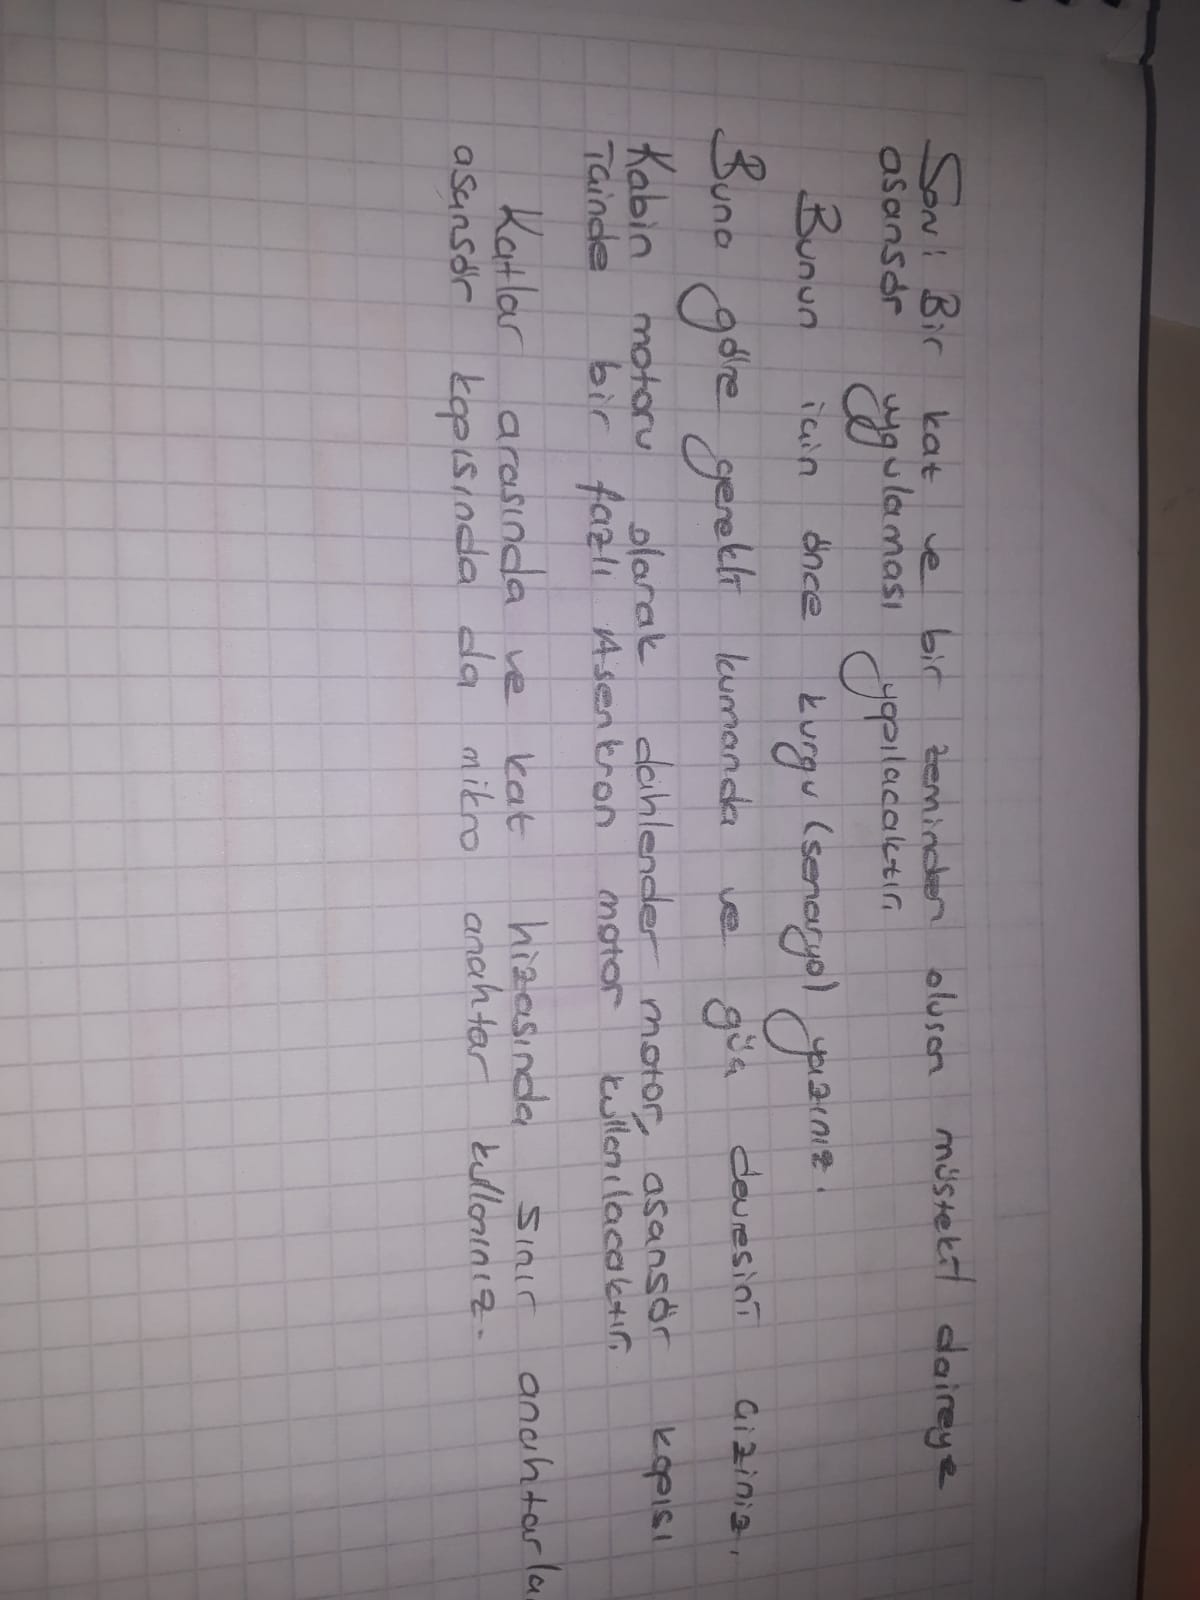 Son: Bir kat ve bir zeminden olusan müstekil daireye
asansör uygulaması yapılacaktır.
Bunun icin önce kurgu (senaryo) yazınız.
Buna göre gerekli kumanda ve güc devresini ciziniz.
Kabin motoru olarak dahlender motor, asansör kapısı
icinde bir fazlı Asenkron motor kullanılacaktır.
Katlar arasında ve kat hizasında sınır anahtarla
asansör kapısında da mikro anahtar kullanınız.